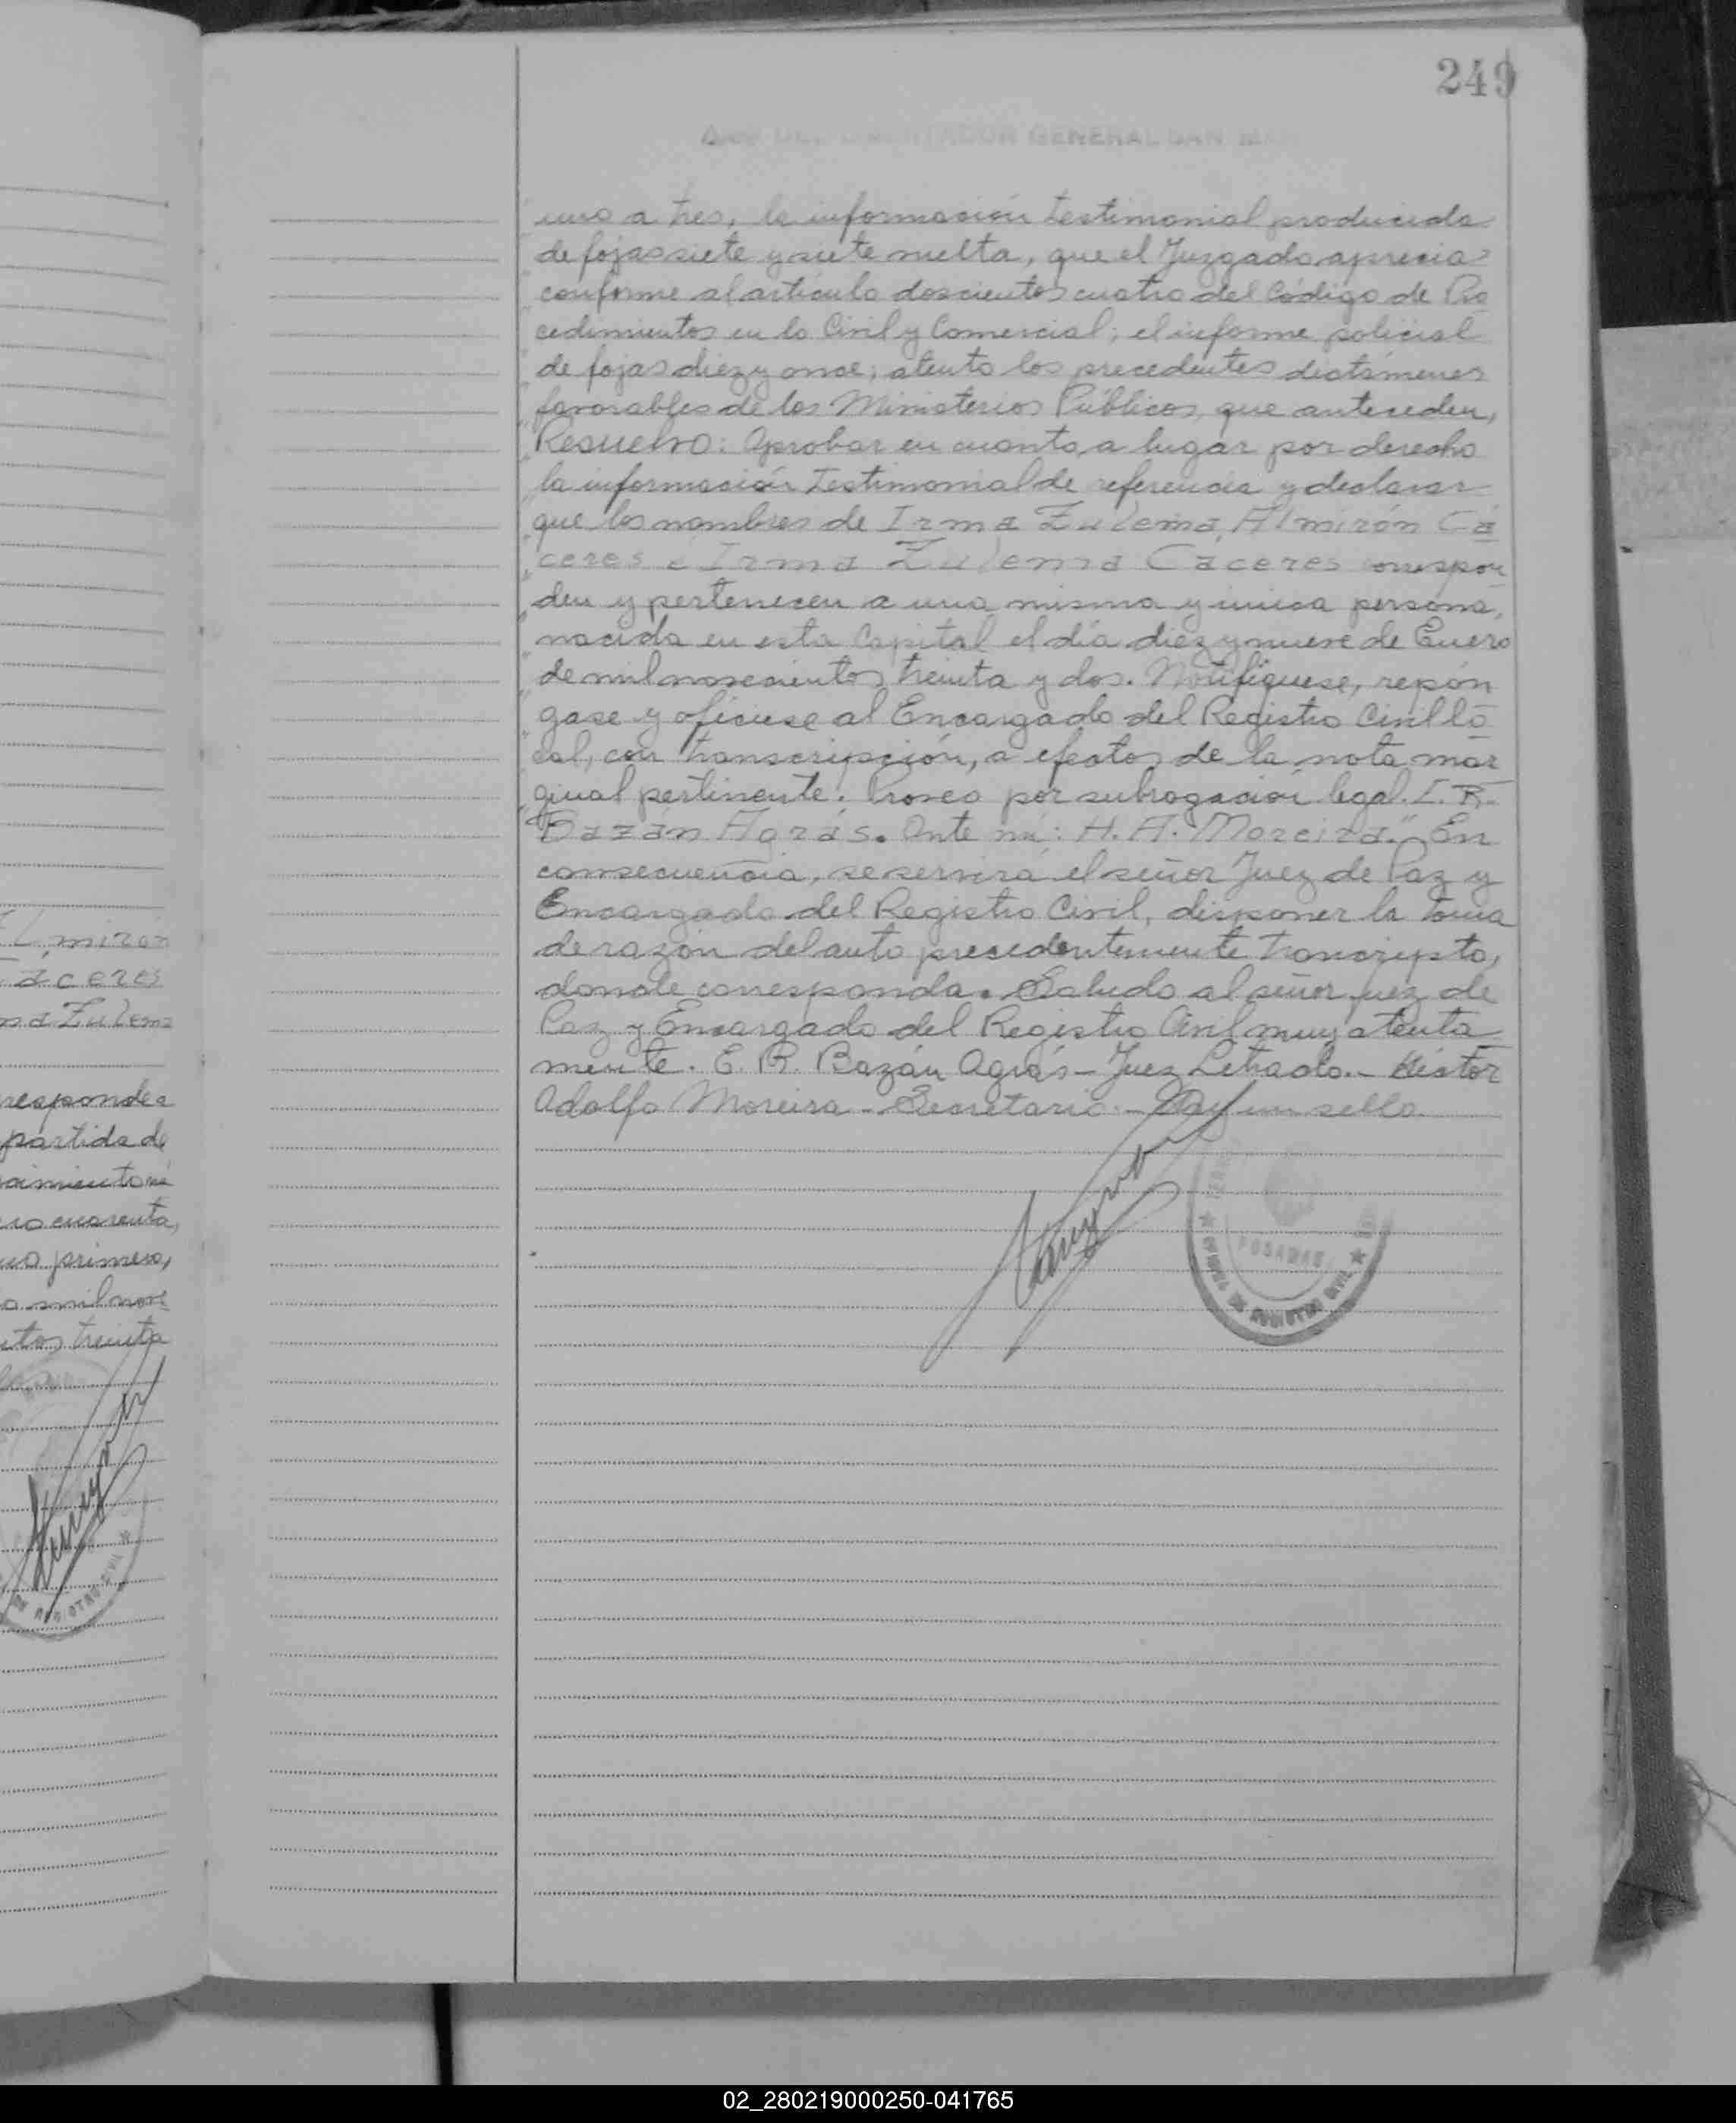 249
GENERAL SAN
uno a tres, la información testimonial producida
de fojas siete y siete vuelta, que el Juzgado aprecia
conforme al artículo doscientos cuatro del Código de Pro
cedimientos en lo Civil y Comercial; el informe policial
de fojas diez y once; atento los precedentes dictámenes
favorables de los Ministerios Públicos, que anteceden,
Resuelvo: Aprobar en cuanto a lugar por derecho
la información testimonial de referencia y declarar
que los nombres de Irma Zulema Almirón Cá
ceres é Irma Zulema Caceres correspon
den y pertenecen a una misma y única persona,
nacida en esta Capital el día diez y nueve de Enero
de mil novecientos treinta y dos. Notifíquese, repón
gase y ofíciese al Encargado del Registro Civil lo
cal, con transcripción, a efectos de la nota mar
ginal pertinente. Proveo por subrogación legal. E. R.
Bazán Agrás. Ante mi: H. A. Moreira." En
consecuencia, se servirá el señor Juez de Paz y
Encargado del Registro Civil, disponer la toma
de razón del auto precedentemente transcripto,
donde corresponda. Saludo al señor juez de
Paz y Encargado del Registro Civil muy atenta
mente. E. R. Bazán Agrás - Juez Letrado. - Héctor
Adolfo Moreira - Secretario. - Hay un sello.
POSADAS
OFICINA DE REGISTRO CIVIL
lmirón
áceres
ma Zulema
responde a
partida de
cimiento nú
ro cuarenta,
mo primero,
o mil nove
ntos treinta
DE REGISTRO CIVIL
02_280219000250-041765